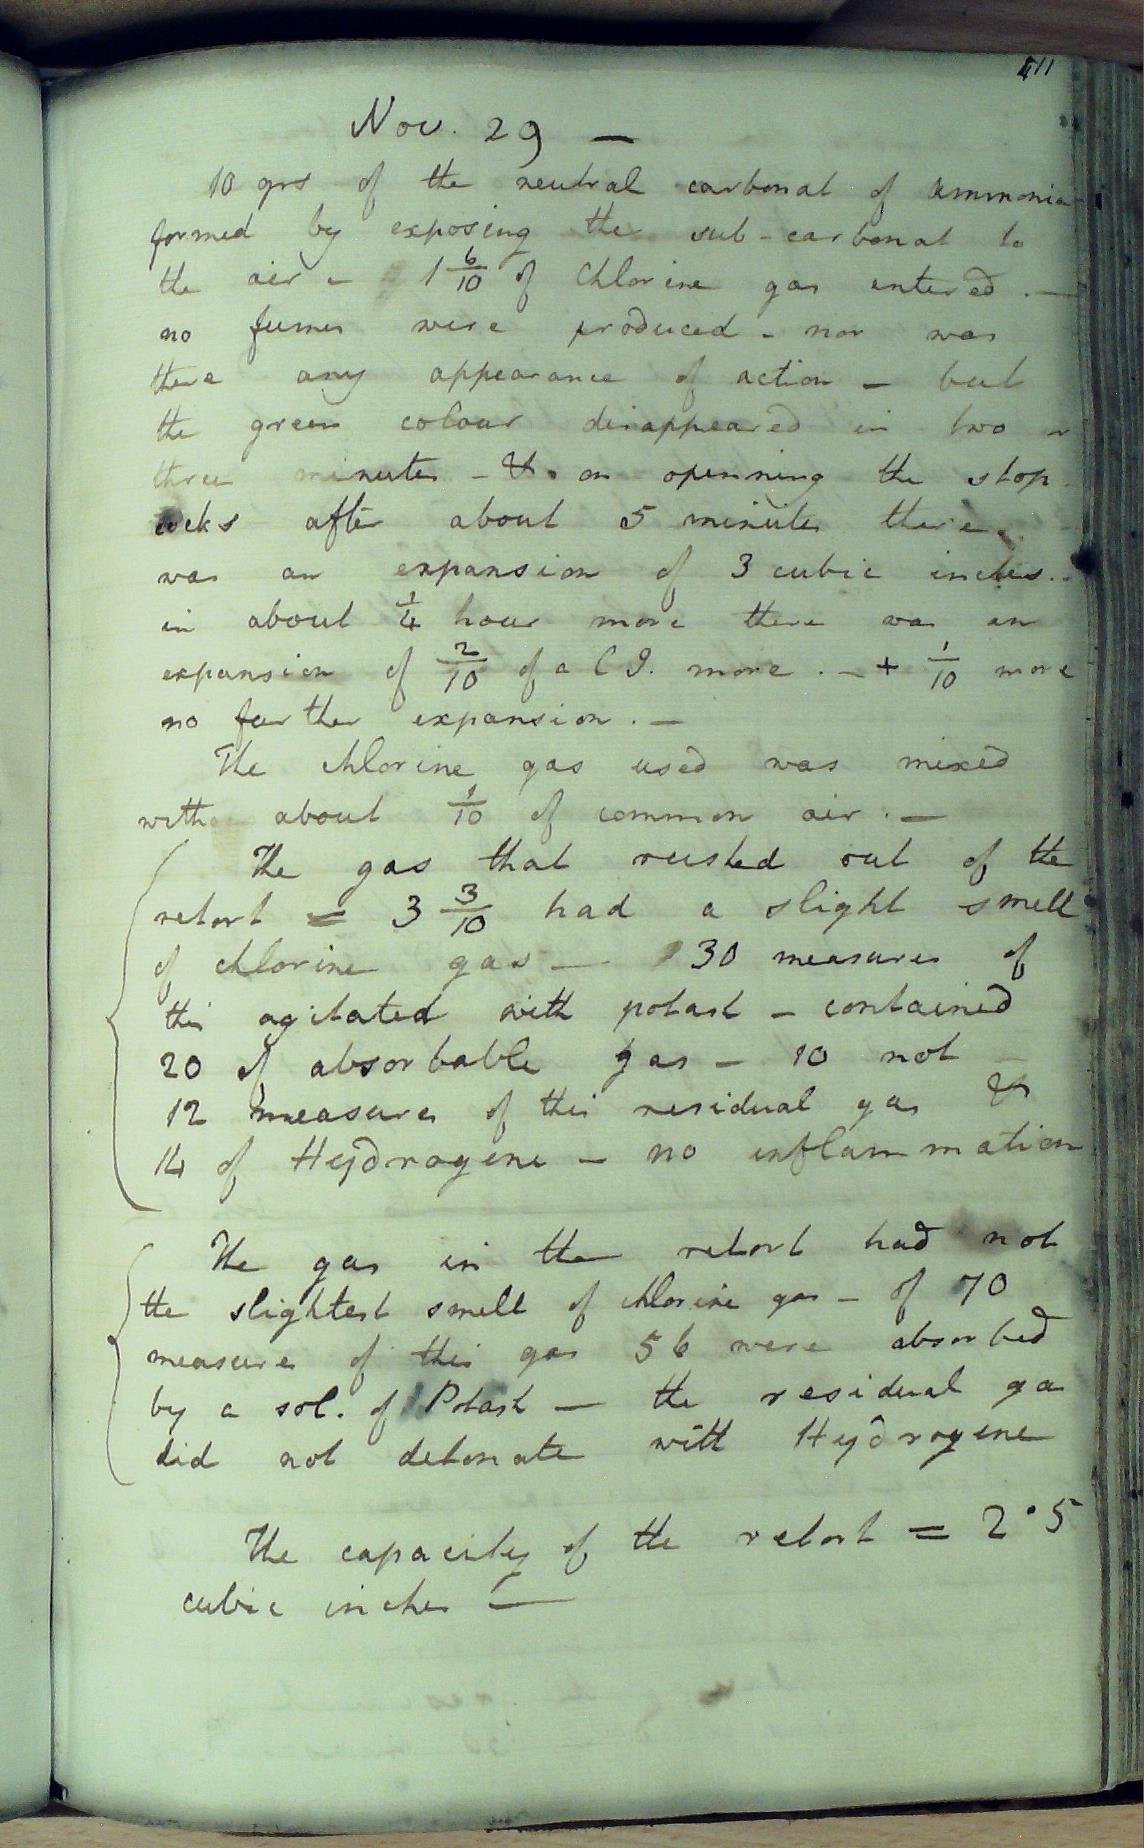 411
Nov. 29 —
10 grs of the neutral carbonat of ammonia
formed by exposing the sub-carbonat to
the air - 1 6/10 of Chlorine gas entered. —
no fumes were produced - nor was
there any appearance of action — but
the green colour disappeared in two or
three minutes - & on openning the stop
cocks after about 5 minutes there
was an expansion of 3 cubic inches..
in about 1/4 hour more there was an
expansion of 2/10 of a C I. more. — + 1/10 more
no further expansion. —
The chlorine gas used was mixed
with about 1/10 of common air. —
The gas that rushed out of the
retort = 3 3/10 had a slight smell
of chlorine gas — 30 measures of
this agitated with potash — contained
20 of absorbable gas — 10 not —
12 measures of this residual gas &
14 of Hydrogene — no inflammation
The gas in the retort had not
the slightest smell of chlorine gas — of 70
measures of this gas 56 were absorbed
by a sol. of Potash — the residual gas
did not detonate with Hydrogene
The capacity of the retort = 2.5
cubic inches —